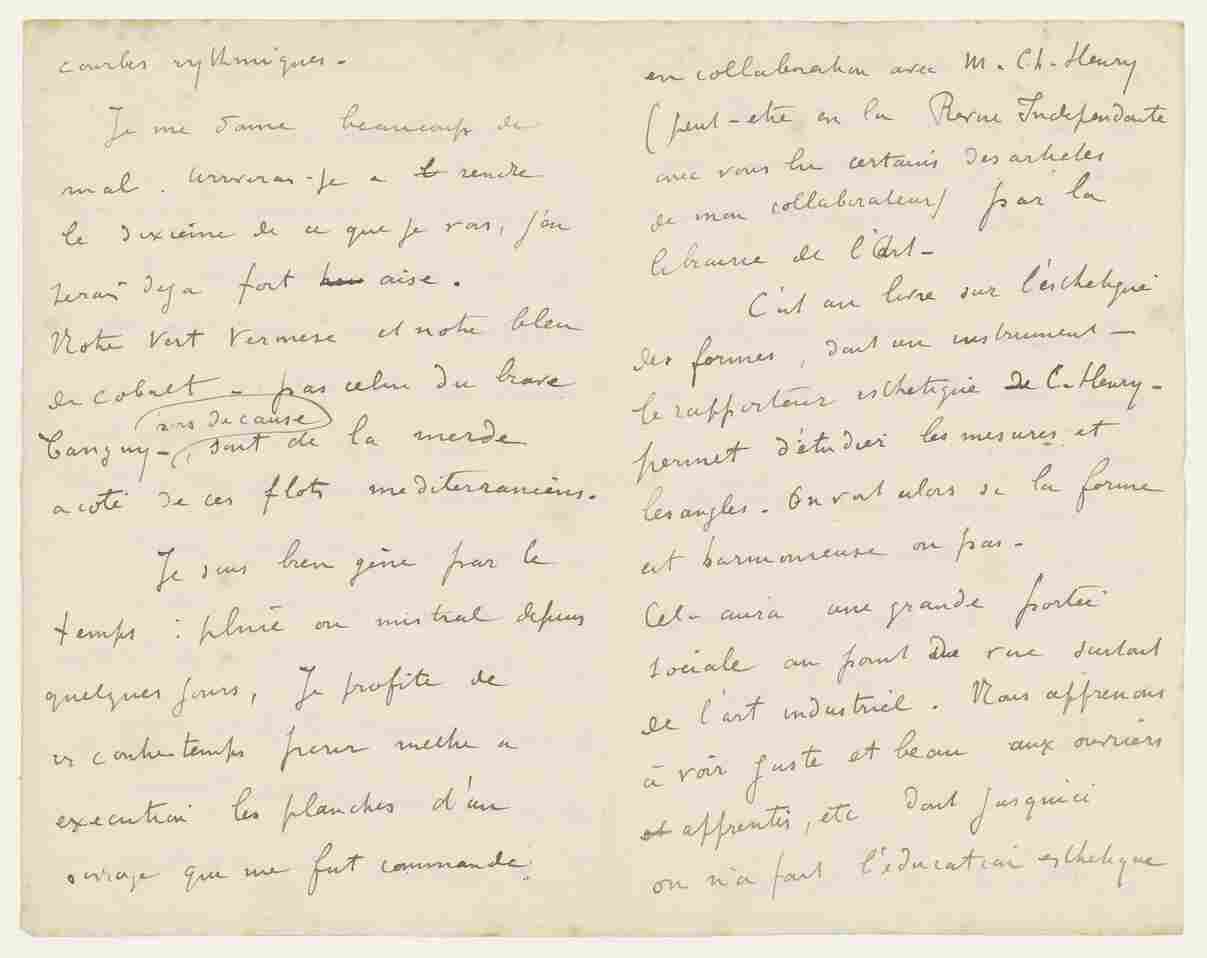 courbes rythmiques.
Je me donne beaucoup de
mal. Arriverai-je a rendre
le dixième de ce que je vois, j'en
serai deja fort aise.
Notre Vert Veronese et notre bleu
de cobalt - pas celui du brave
hors de cause
Tanguy -, sont de la merde
a coté de ces flots mediterranéens.
Je suis bien gêné par le
temps : pluie ou mistral depuis
quelques jours, Je profite de
ce contretemps pour mettre a
execution les planches d'un
ouvrage que me fut commandé
en collaboration avec M. Ch. Henry
(peut-etre en la Revue Independante
avez vous lu certains des articles
de mon collaborateur) par la
librairie de l'Art -
C'est un livre sur l'esthetique
des formes, dont un instrument -
le rapporteur esthetique de C. Henry -
permet d'étudier les mesures et
les angles. On voit alors si la forme
est harmonieuse ou pas.
Cel- aura une grande portée
sociale au point de vue surtout
de l'art industriel. Nous apprenons
à voir juste et beau aux ouvriers
et apprentis, etc dont jusqu'ici
on n'a fait l'éducation esthetique